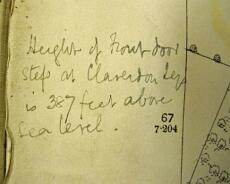 Height of Front door
step at Claverton Lye
is 387 feet above
sea level.
67
7·204